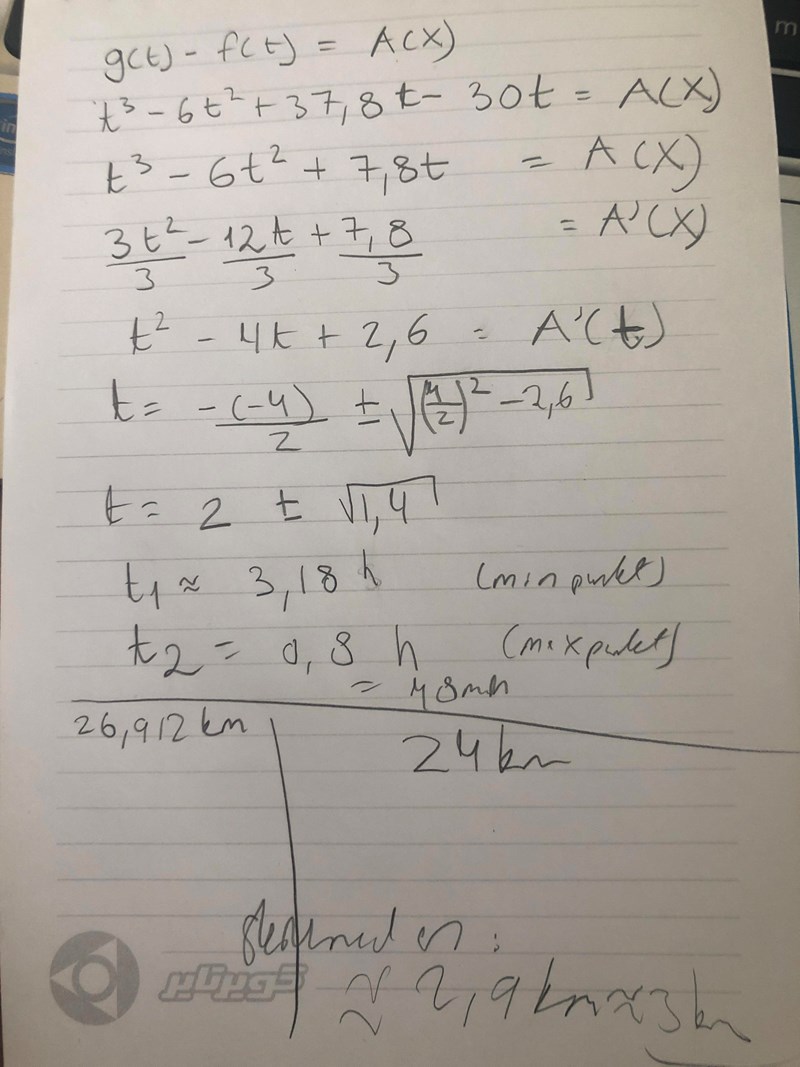 g(t) - f(t) = A(X)
t³ - 6t² + 37,8t - 30t = A(X)
t³ - 6t² + 7,8t = A(X)
3t²/3 - 12t/3 + 7,8/3 = A'(X)
t² - 4t + 2,6 = A'(t)
t = -(-4)/2 ± √((4/2)² - 2,6)
t = 2 ± √1,4
t₁ ≈ 3,18 h (min punkt)
t₂ = 0,8 h (max punkt)
= 48 min
26,912 km
24 km
:
≈ 2,9 km ≈ 3 km